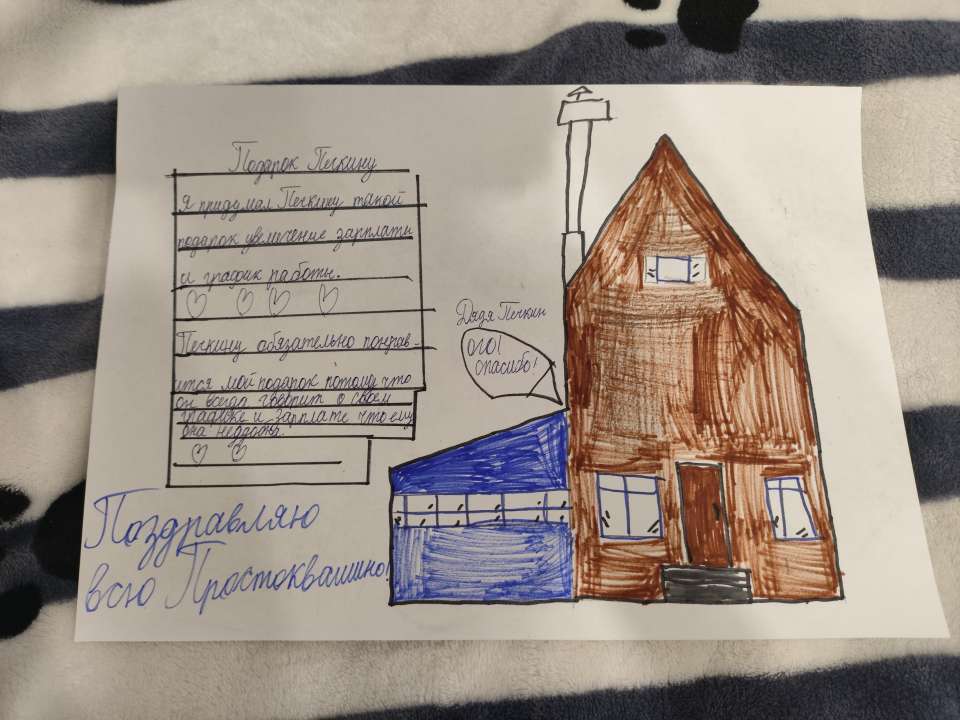 Подарок Печкину
Я придумал Печкину такой
подарок увеличение зарплаты
и график работы.
Печкину обязательно понрав-
ится мой подарок потому что
он всегда говорит о своем
графике и зарплате что ему
она
Дядя Печкин
ОГО!
спасибо!
Поздравляю
всю Простоквашино!